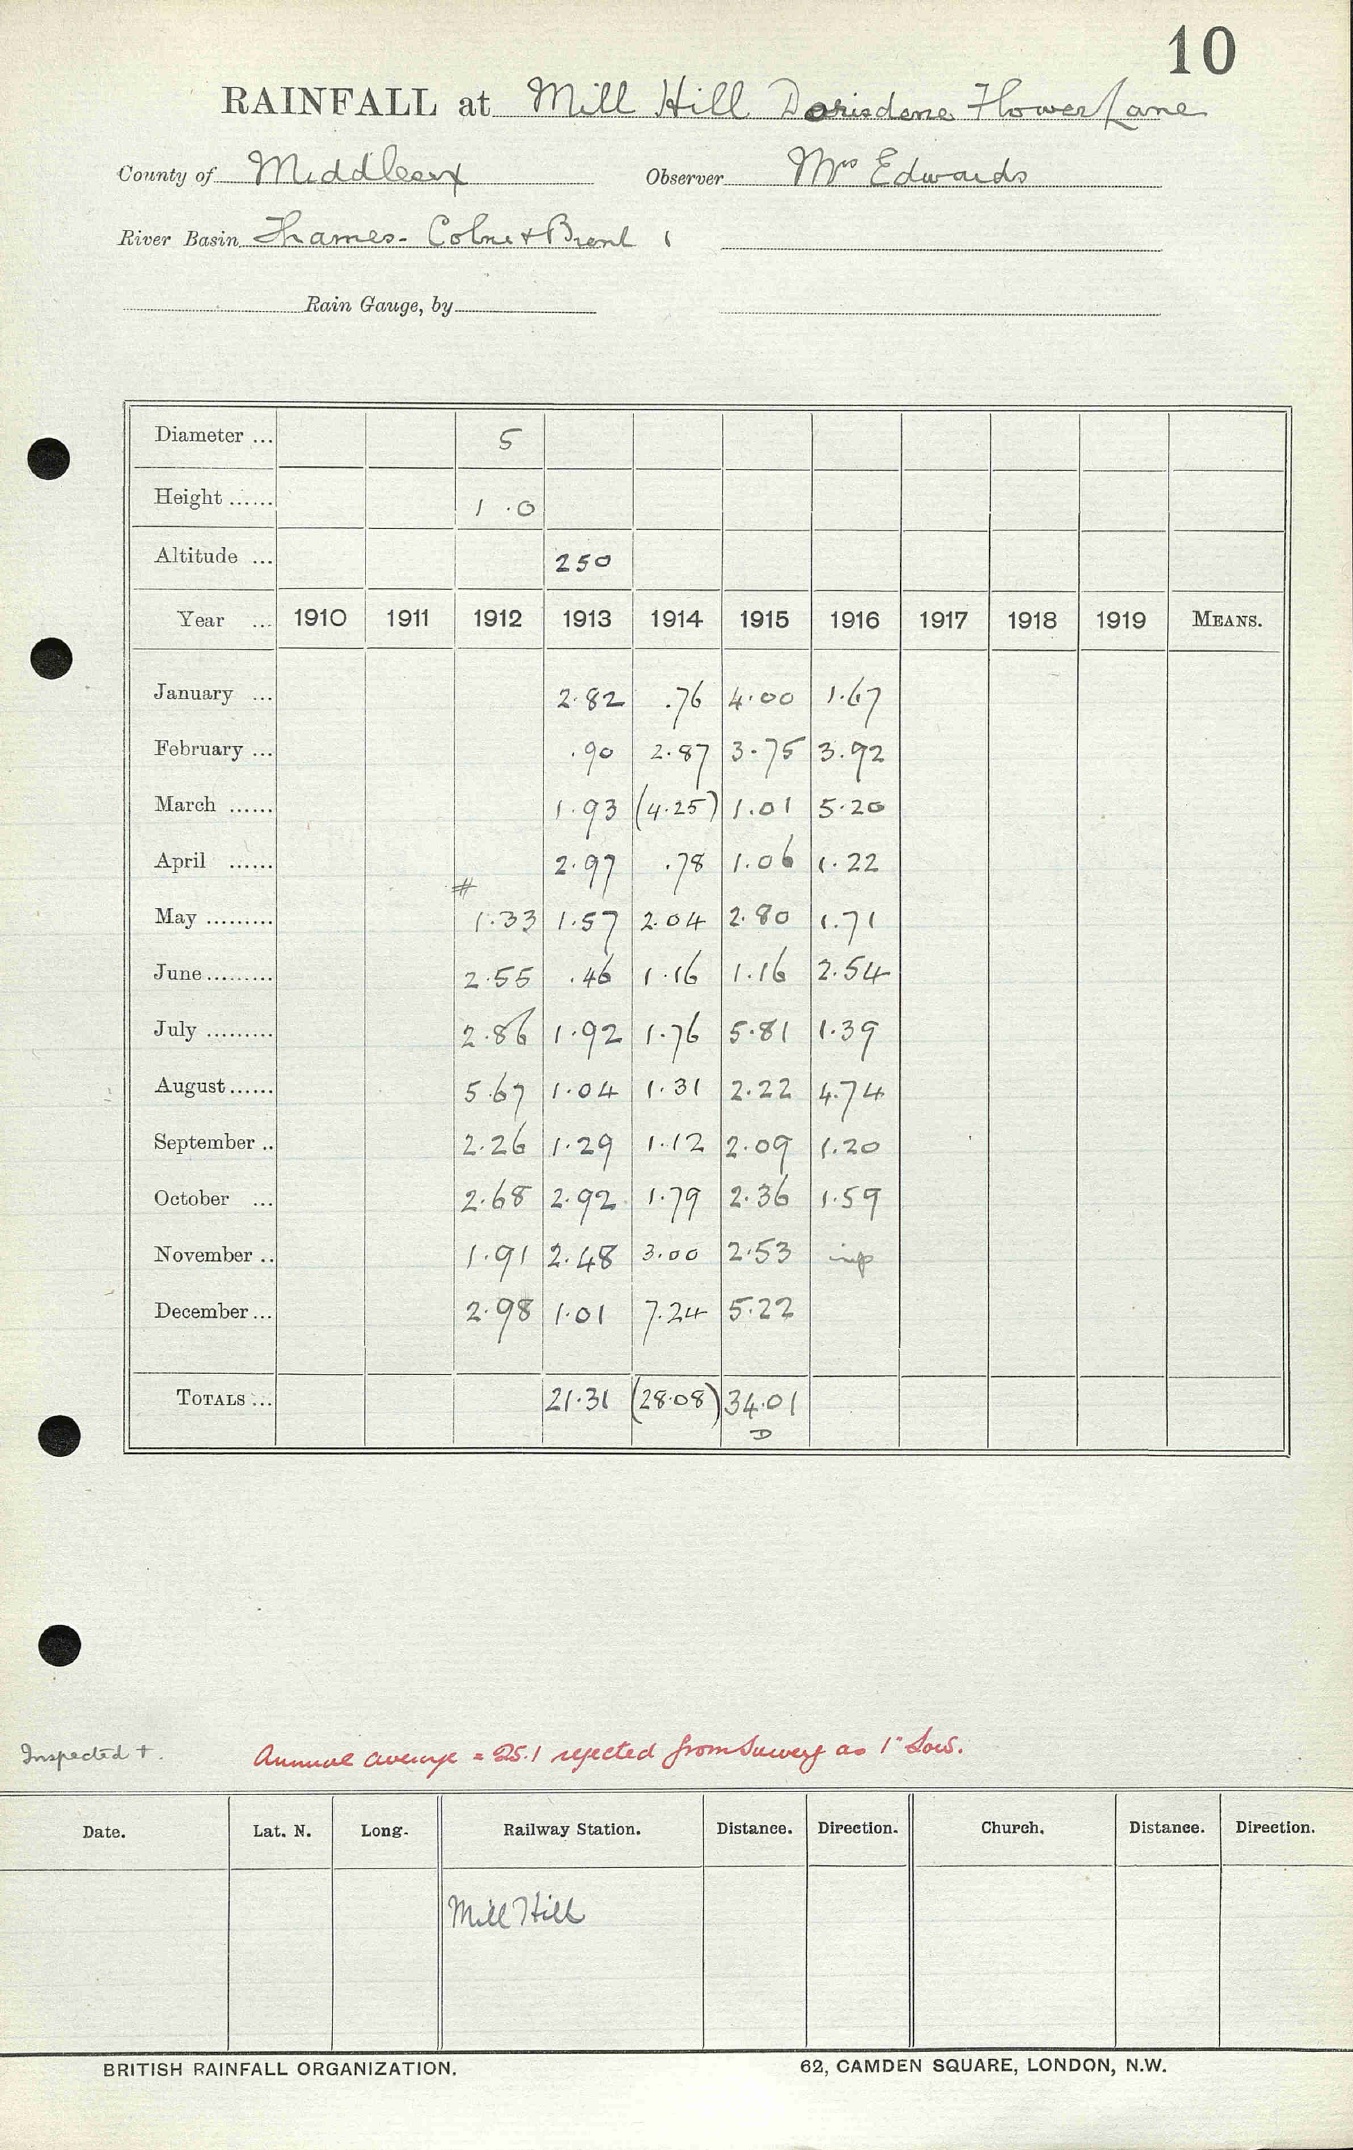 10
RAINFALL at Mill Hill Dorisdene Flower Lane
County of Middlesex Observer Mrs Edwards
River Basin Thames - Colne & Brent 1
Rain Gauge, by
Diameter ... 5
Height ...... 1.0
Altitude ... 250
Year ... 1910 1911 1912 1913 1914 1915 1916 1917 1918 1919 MEANS.
January ... 2.82 .76 4.00 1.67
February ... .90 2.87 3.75 3.92
March ...... 1.93 (4.25) 1.01 5.20
April ...... 2.97 .78 1.06 1.22
#
May ......... 1.33 1.57 2.04 2.80 1.71
June ......... 2.55 .46 1.16 1.16 2.54
July ......... 2.86 1.92 1.76 5.81 1.39
August ...... 5.67 1.04 1.31 2.22 4.74
September .. 2.26 1.29 1.12 2.09 1.20
October ... 2.68 2.92 1.79 2.36 1.59
November .. 1.91 2.48 3.00 2.53 inp
December ... 2.98 1.01 7.24 5.22
TOTALS ... 21.31 (28.08) 34.01
D
Inspected †. Annual average = 25.1 rejected from Survey as 1" low.
Date. Lat. N. Long. Railway Station. Distance. Direction. Church. Distance. Direction.
Mill Hill
BRITISH RAINFALL ORGANIZATION. 62, CAMDEN SQUARE, LONDON, N.W.